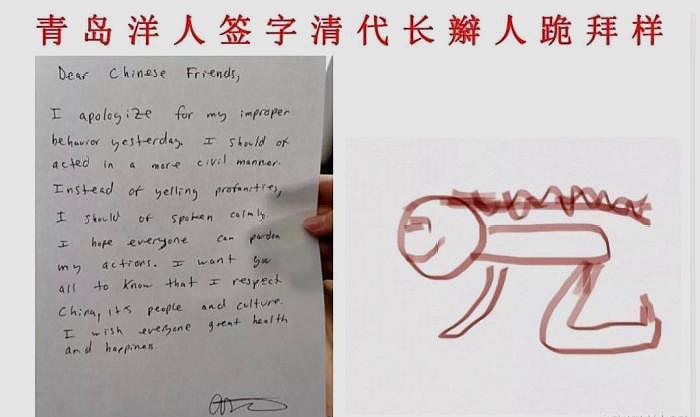 青岛洋人签字清代长辫人跪拜样
Dear Chinese Friends,
I apologize for my improper
behavior yesterday. I should of
acted in a more civil manner.
Instead of yelling profanities,
I should of spoken calmly.
I hope everyone can pardon
my actions. I want you
all to know that I respect
China, its people and culture.
I wish everyone great health
and happiness.